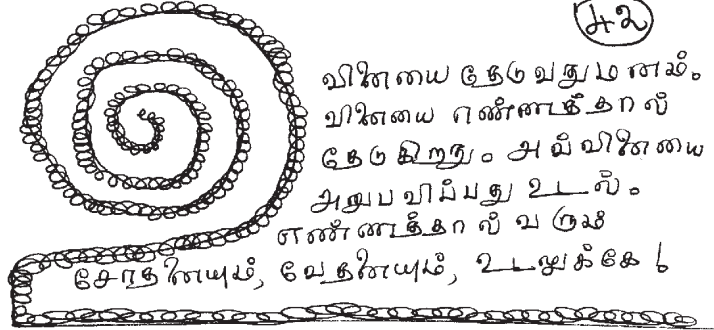 42
வினையை தேடுவதுமனம்.
வினையை எண்ணத்தால்
தேடுகிறது. அவ்வினையை
அனுபவிப்பது உடல்.
எண்ணத்தால் வரும்
சோதனையும், வேதனையும், உடலுக்கே!